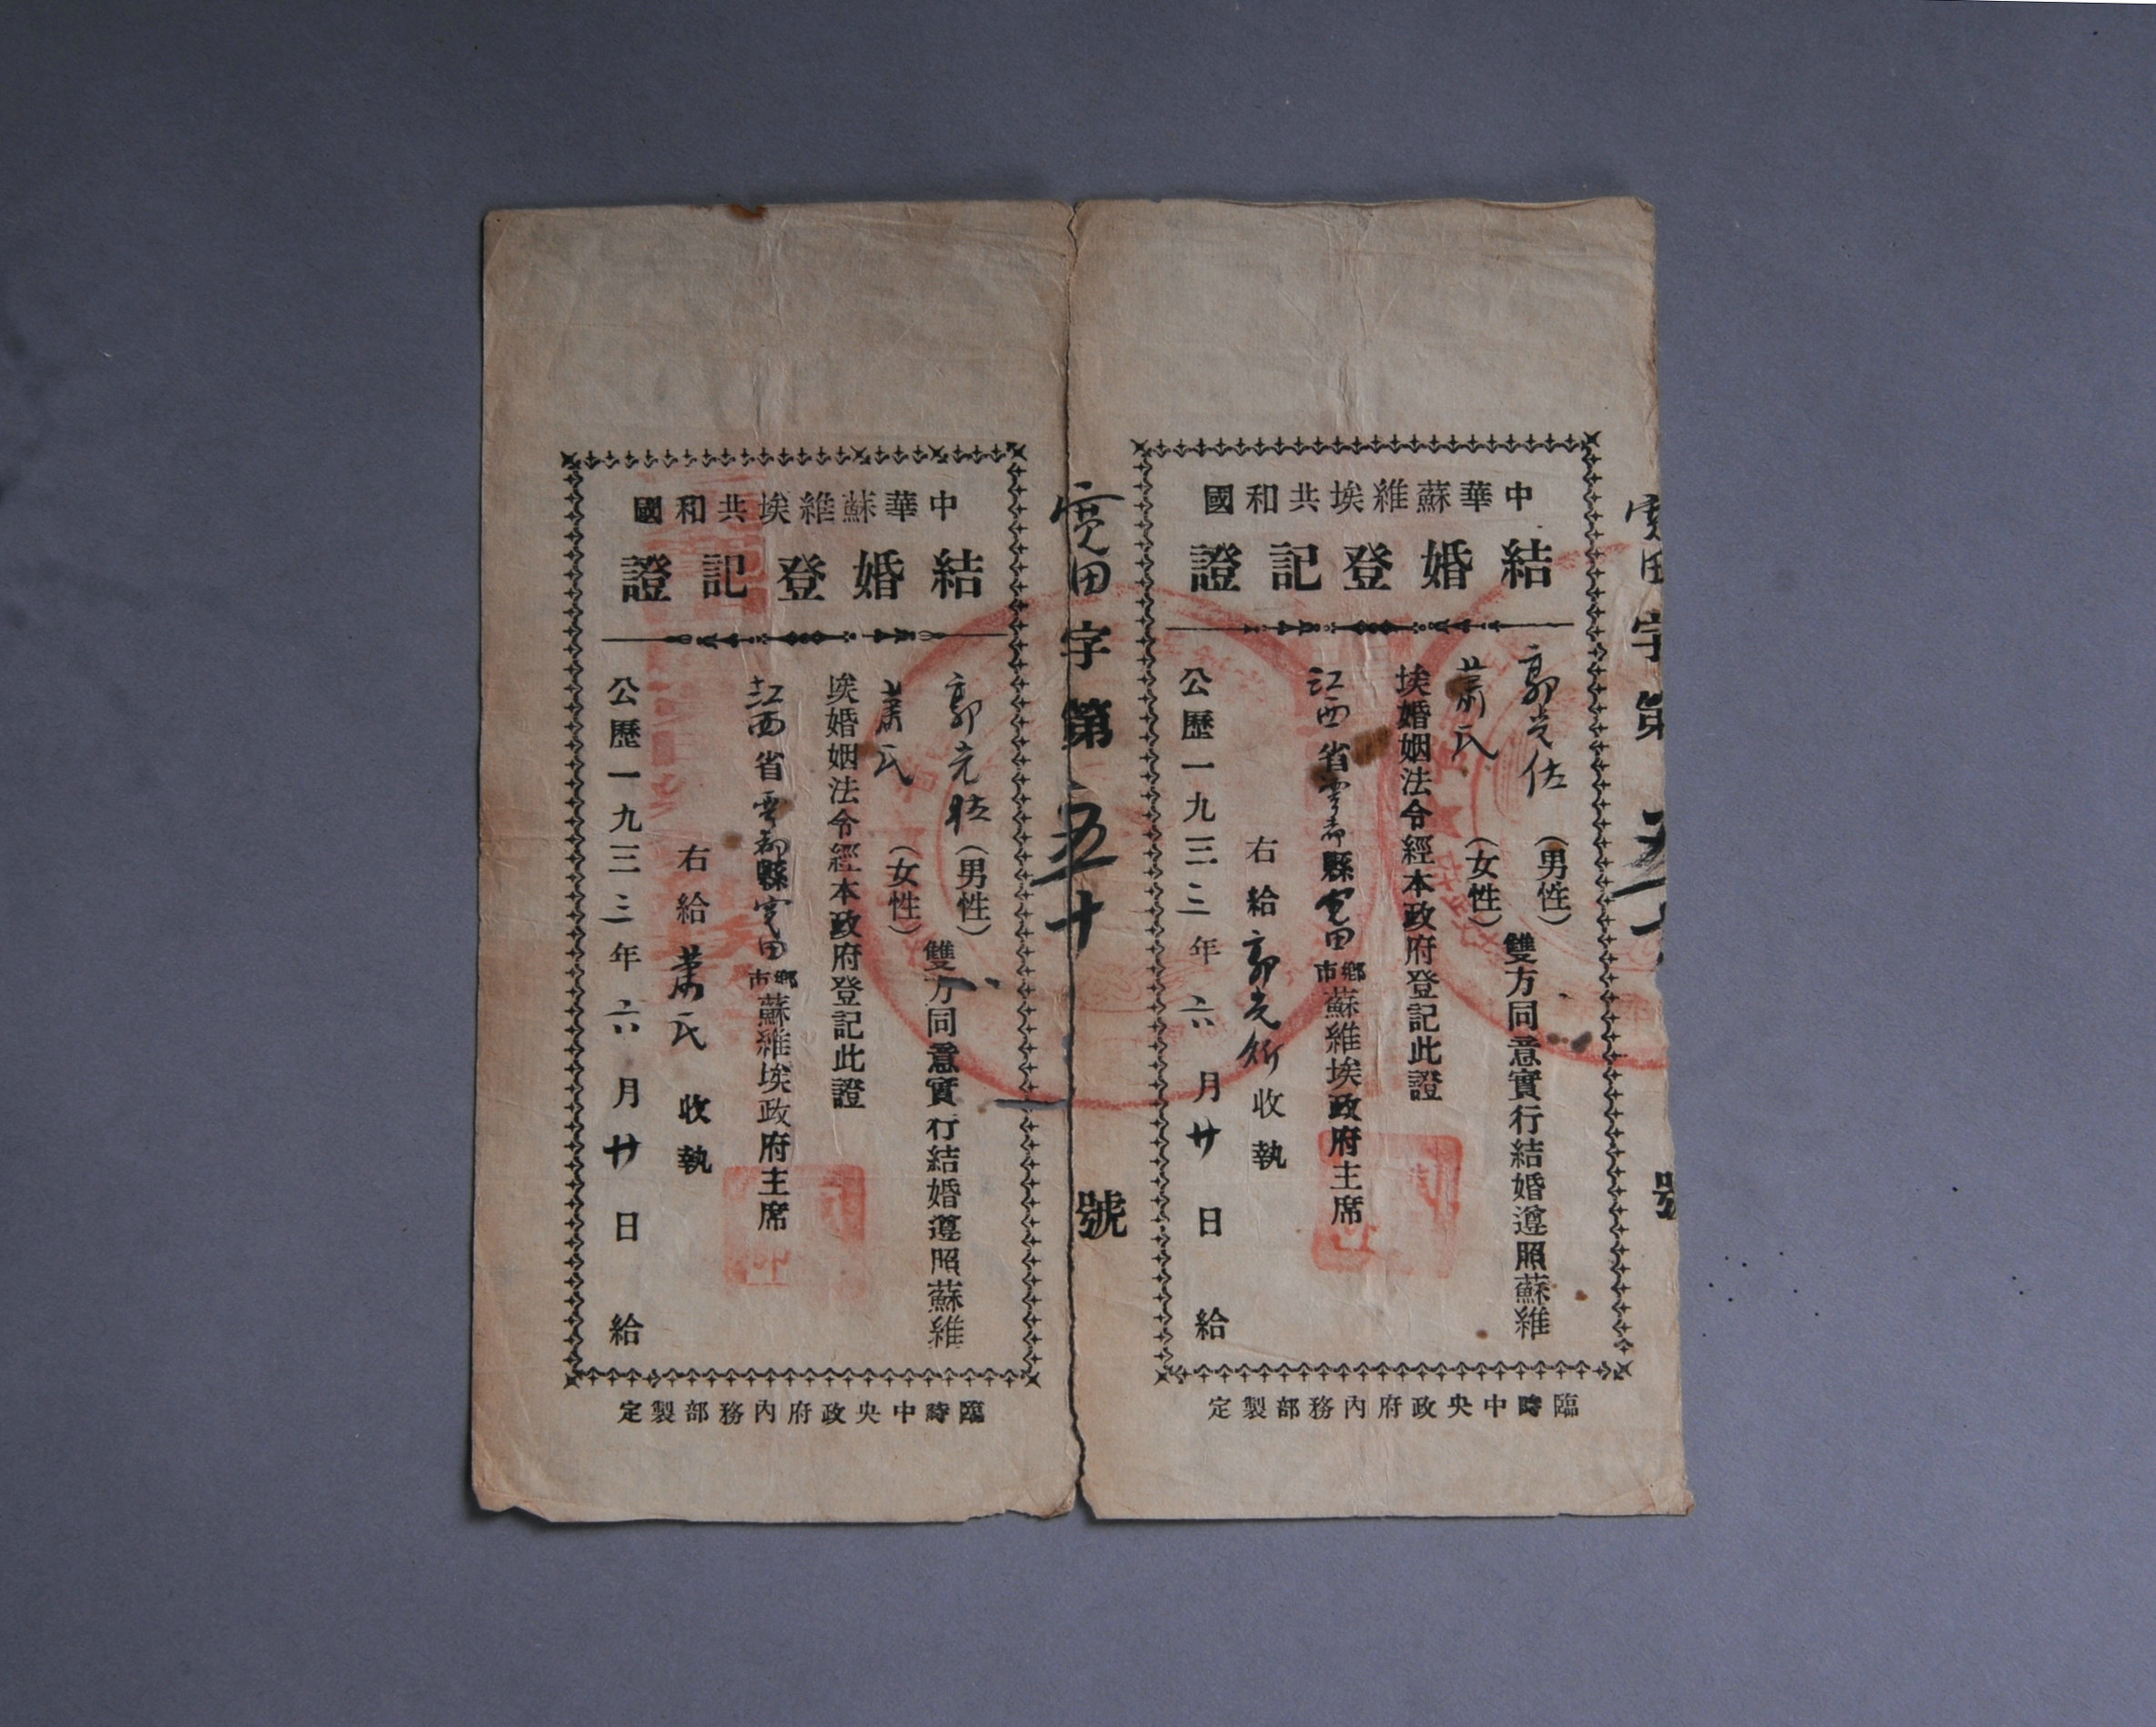 寬田字第五十號
中華蘇維埃共和國
結婚登記證
郭光佐（男性）
蕭氏（女性）
雙方同意實行結婚遵照蘇維
埃婚姻法令經本政府登記此證
江西省雩都縣寬田鄉市蘇維埃政府主席
右給郭光 收執
公歷一九三三年六月廿日給
臨時中央政府內務部製定
寬田字第五十號
中華蘇維埃共和國
結婚登記證
郭光（男性）
蕭氏（女性）
雙方同意實行結婚遵照蘇維
埃婚姻法令經本政府登記此證
江西省雩都縣寬田鄉市蘇維埃政府主席
右給蕭氏收執
公歷一九三三年六月廿日給
臨時中央政府內務部製定